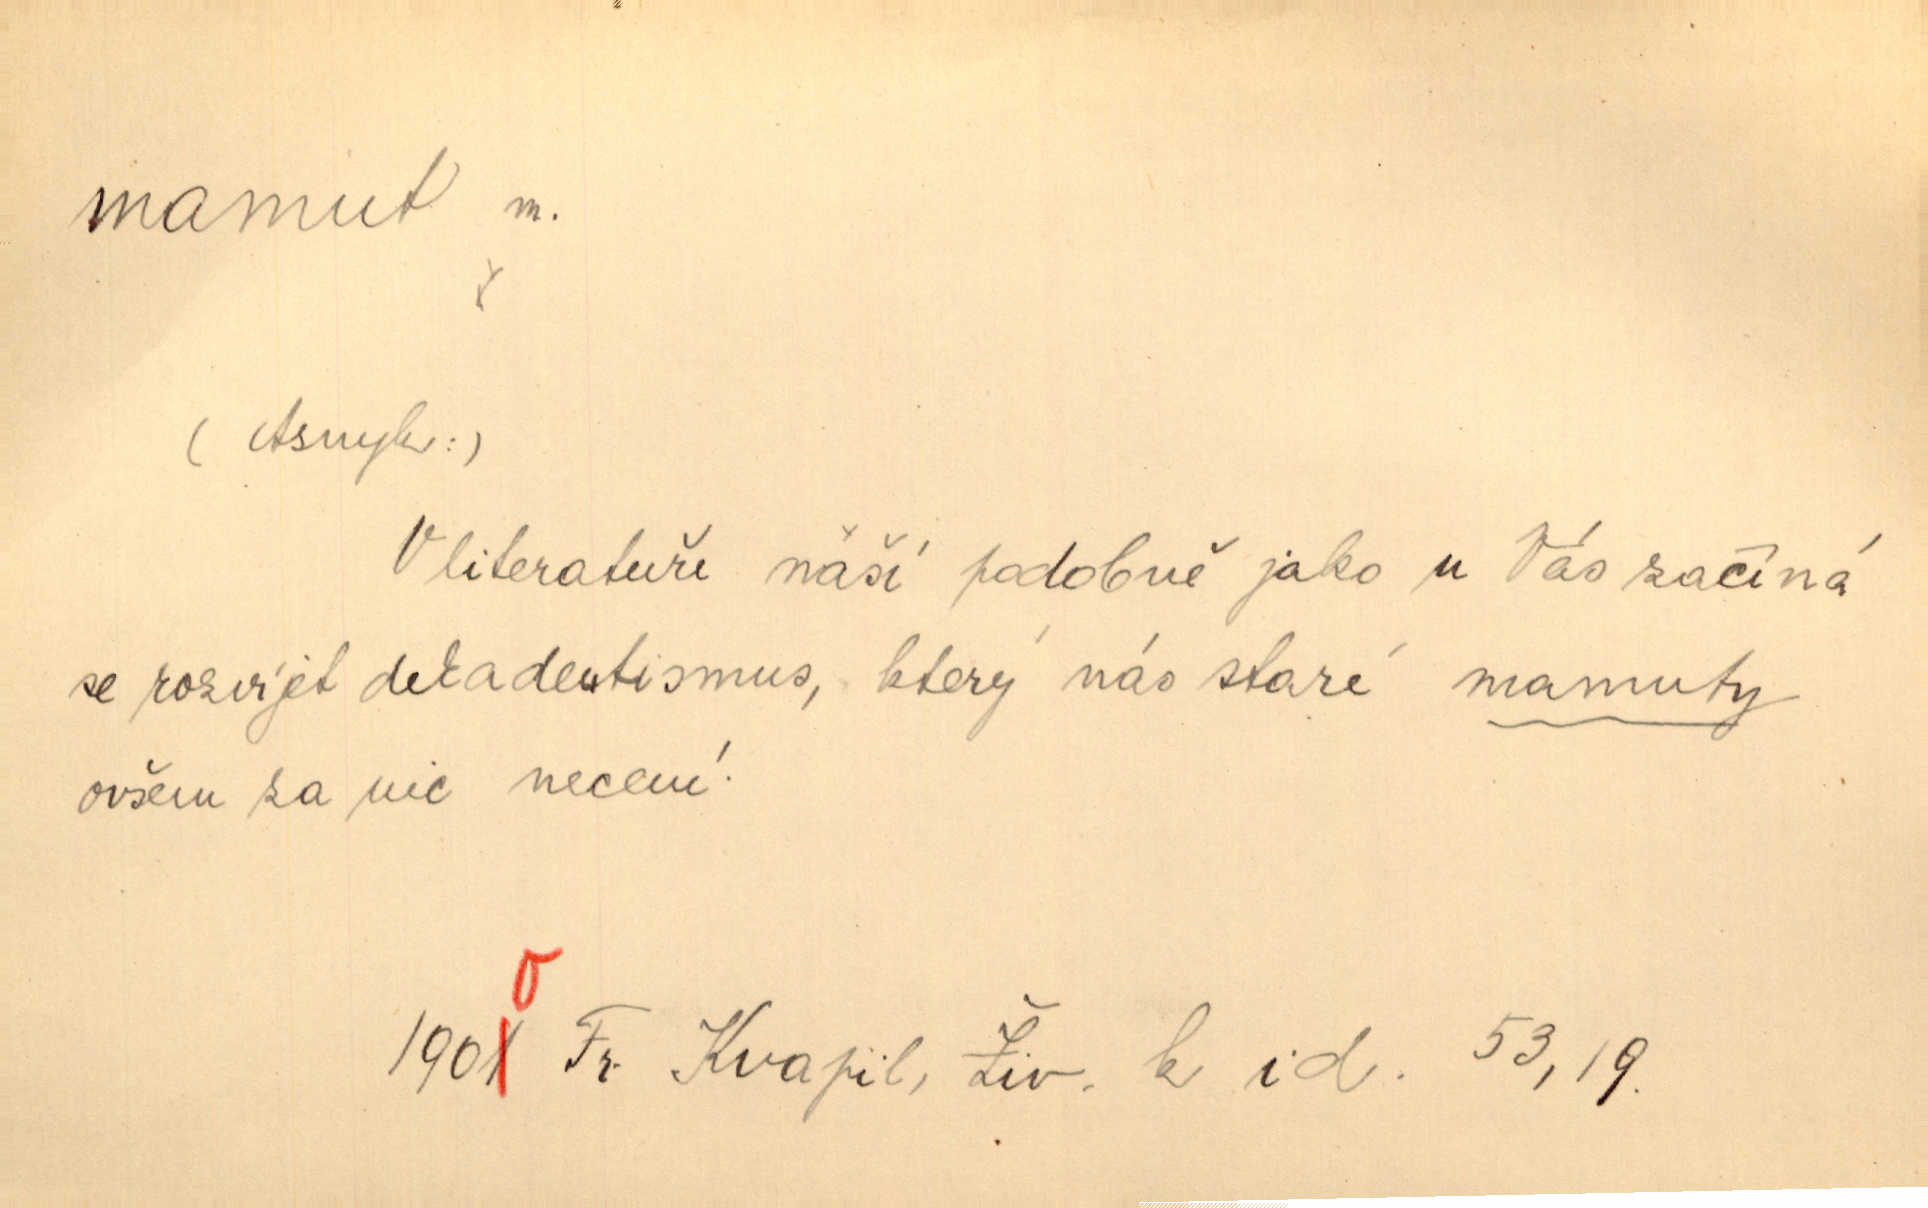 mamut m.
(Asnyk:)
V literatuře naší podobně jako u Vás začíná
se rozvíjet dekadentismus, který nás staré mamuty
ovšem za nic necení.
0
1901 Fr. Kvapil, Živ. k id. 53, 19.